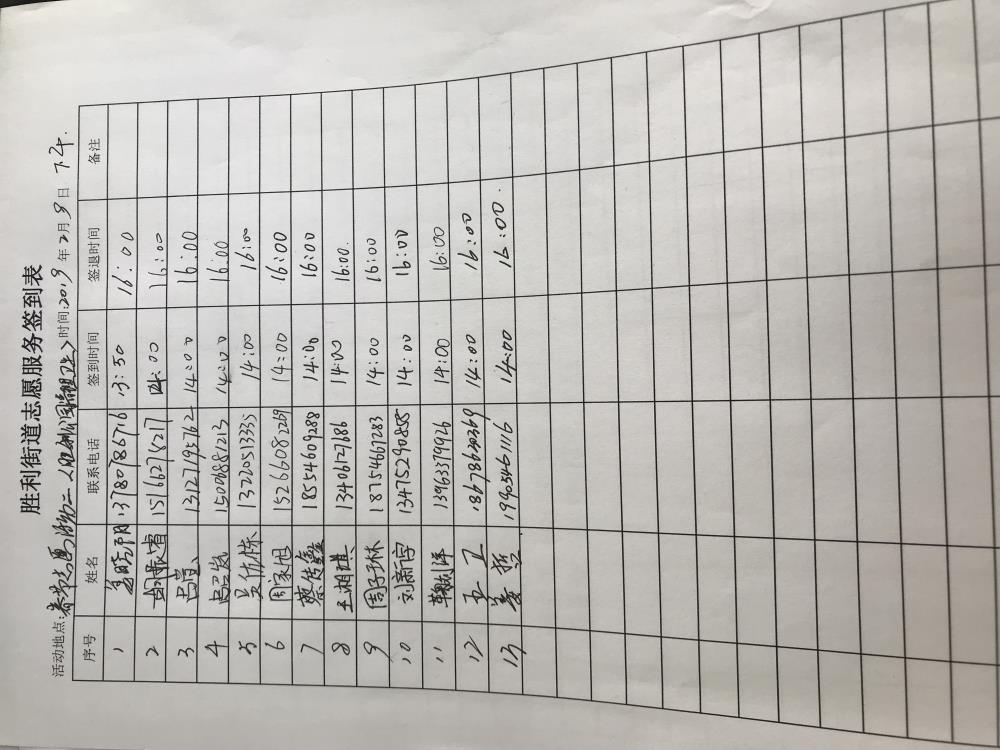 胜利街道志愿服务签到表
活动地点: 时间:2019年2月9日 下午.
序号 姓名 联系电话 签到时间 签退时间 备注
1 13780786716 13:50 16:00
2 15166278217 14:00 16:00
3 吕昊 13127195762 14:00 16:00
4 吕岚 15006881213 14:00 16:00
5 吴优栋 13220513335 14:00 16:00
6 周家旭 15266082269 14:00 16:00
7 蔡传鑫 18554609288 14:00 16:00
8 王湘琪 13406127686 14:00 16:00.
9 周子琳 18754667283 14:00 16:00
10 刘新宇 13475290855 14:00 16:00
11 13963379926 14:00 16:00
12 王卫 14:00 16:00
13 姜哲 19905461116 14:00 16:00.